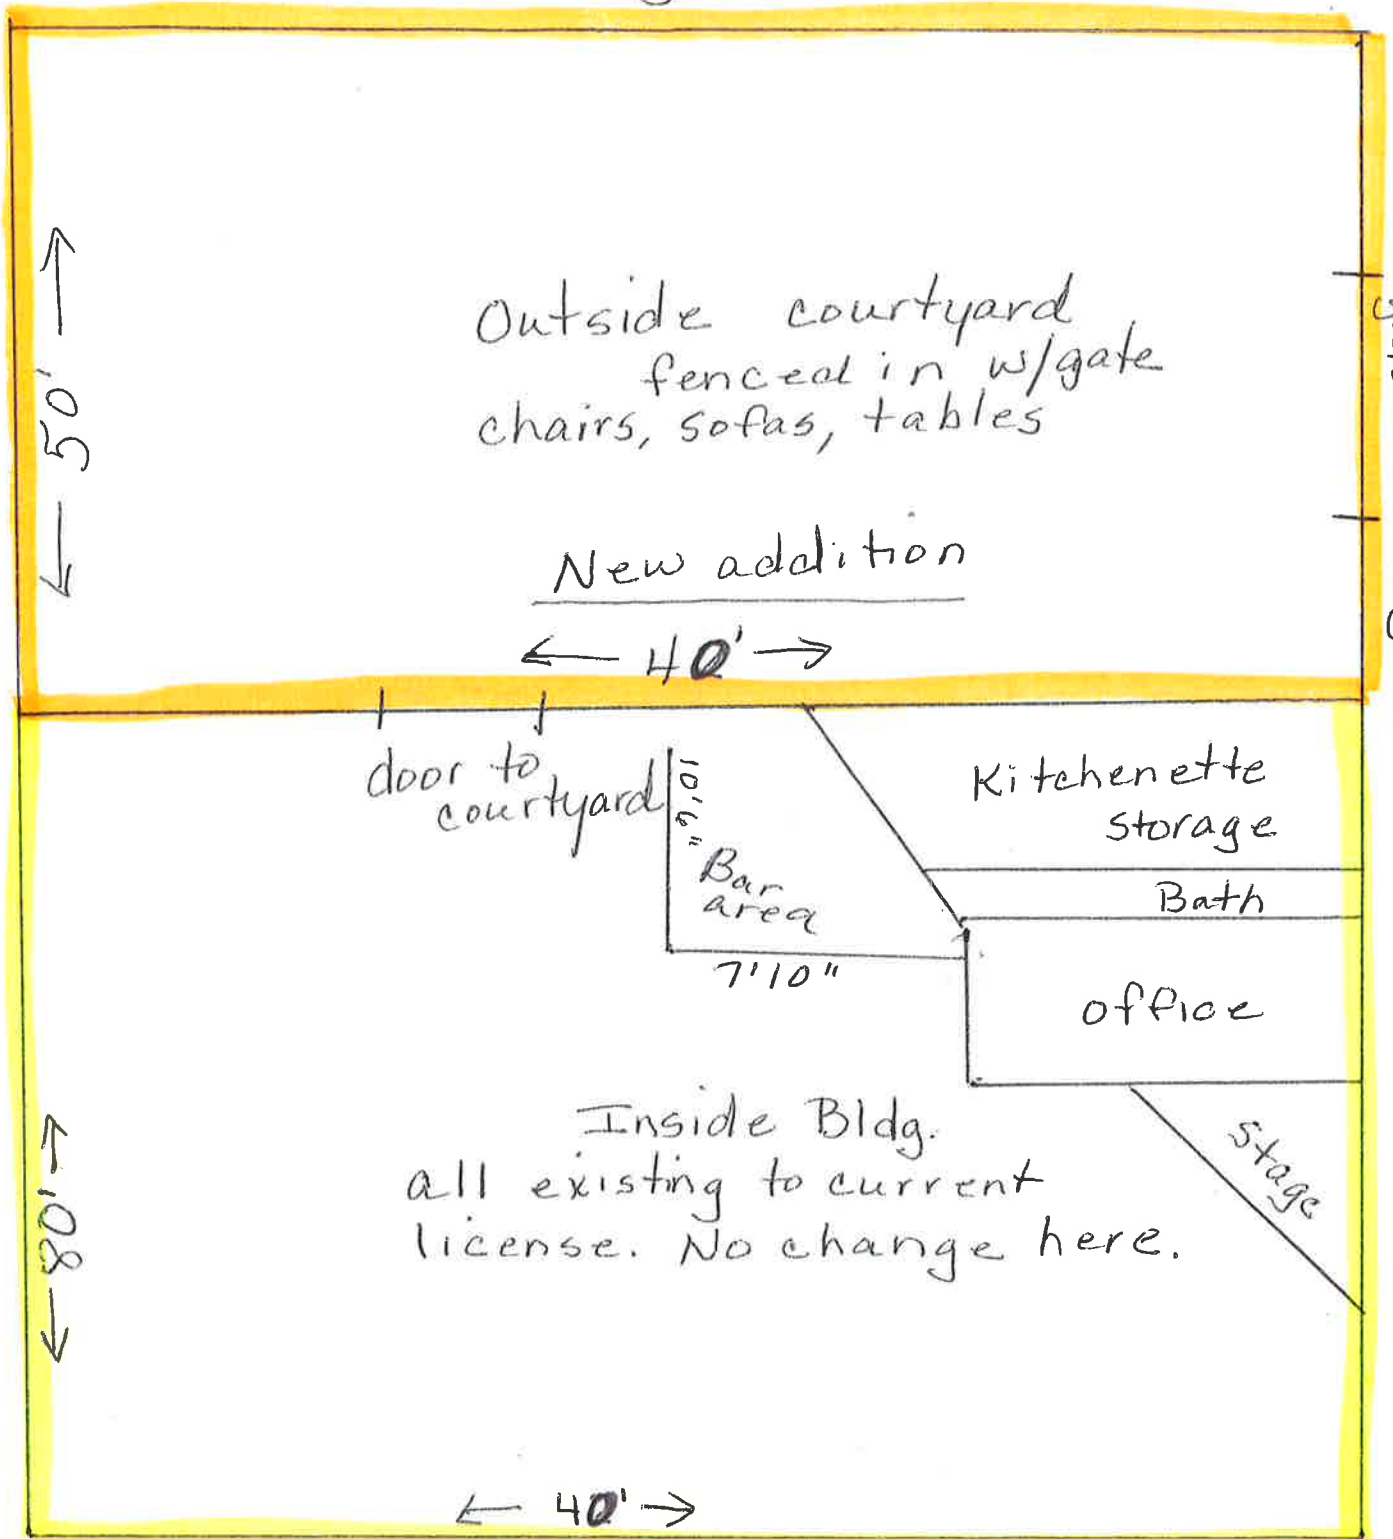 ← 50' →
Outside courtyard
fenced in w/gate
chairs, sofas, tables
New addition
← 40' →
door to
courtyard
10'6"
Bar
area
7'10"
Kitchenette
storage
Bath
office
Stage
Inside Bldg.
all existing to current
license. No change here.
← 80' →
← 40' →